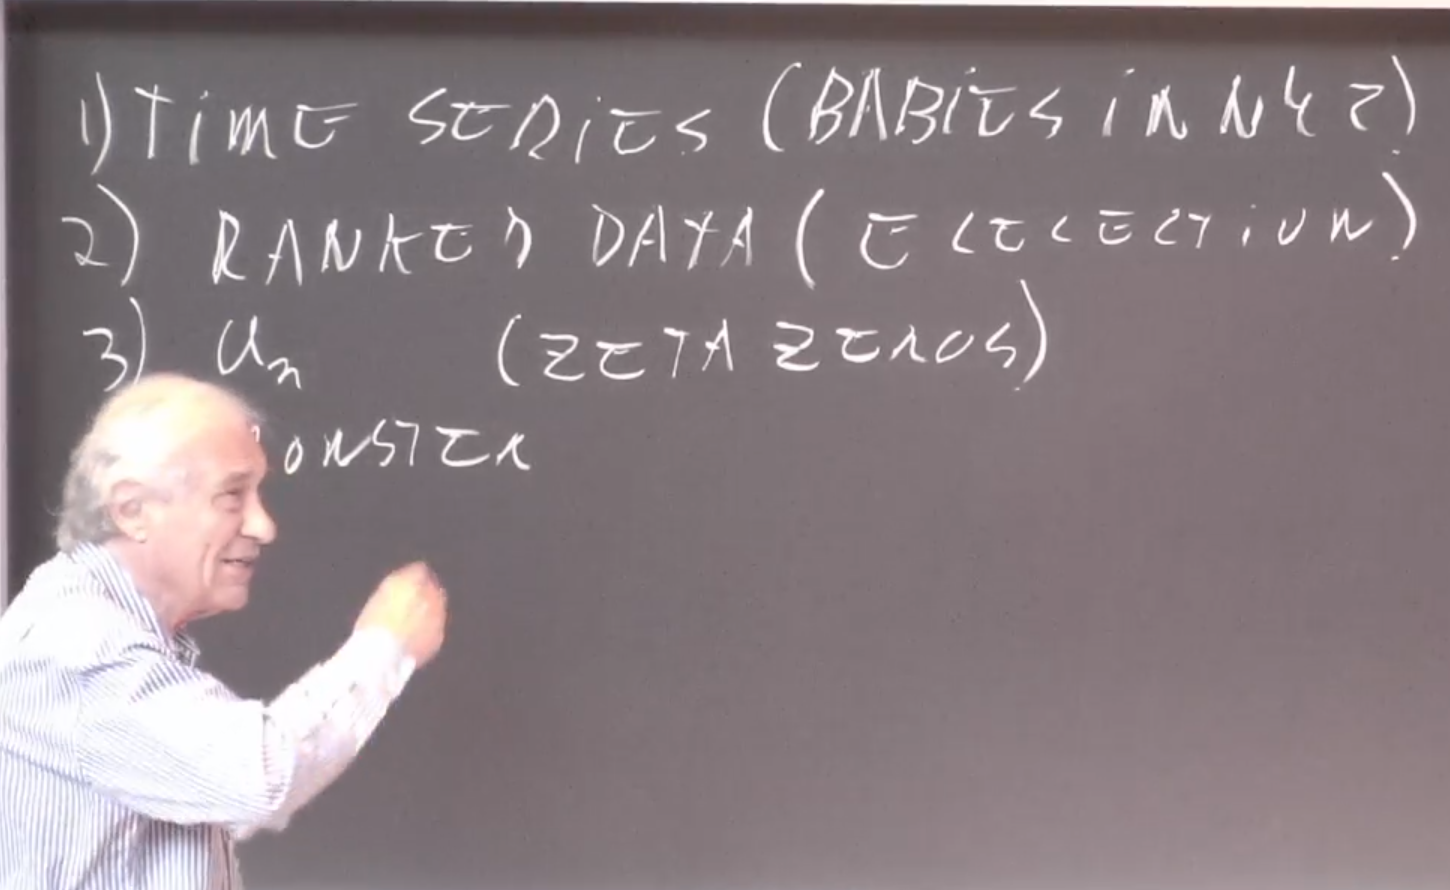 1) TIME SERIES (BABIES IN NYC)
2) RANKED DATA (ELECTION)
3) Un (ZETA ZEROS)
ONSTER